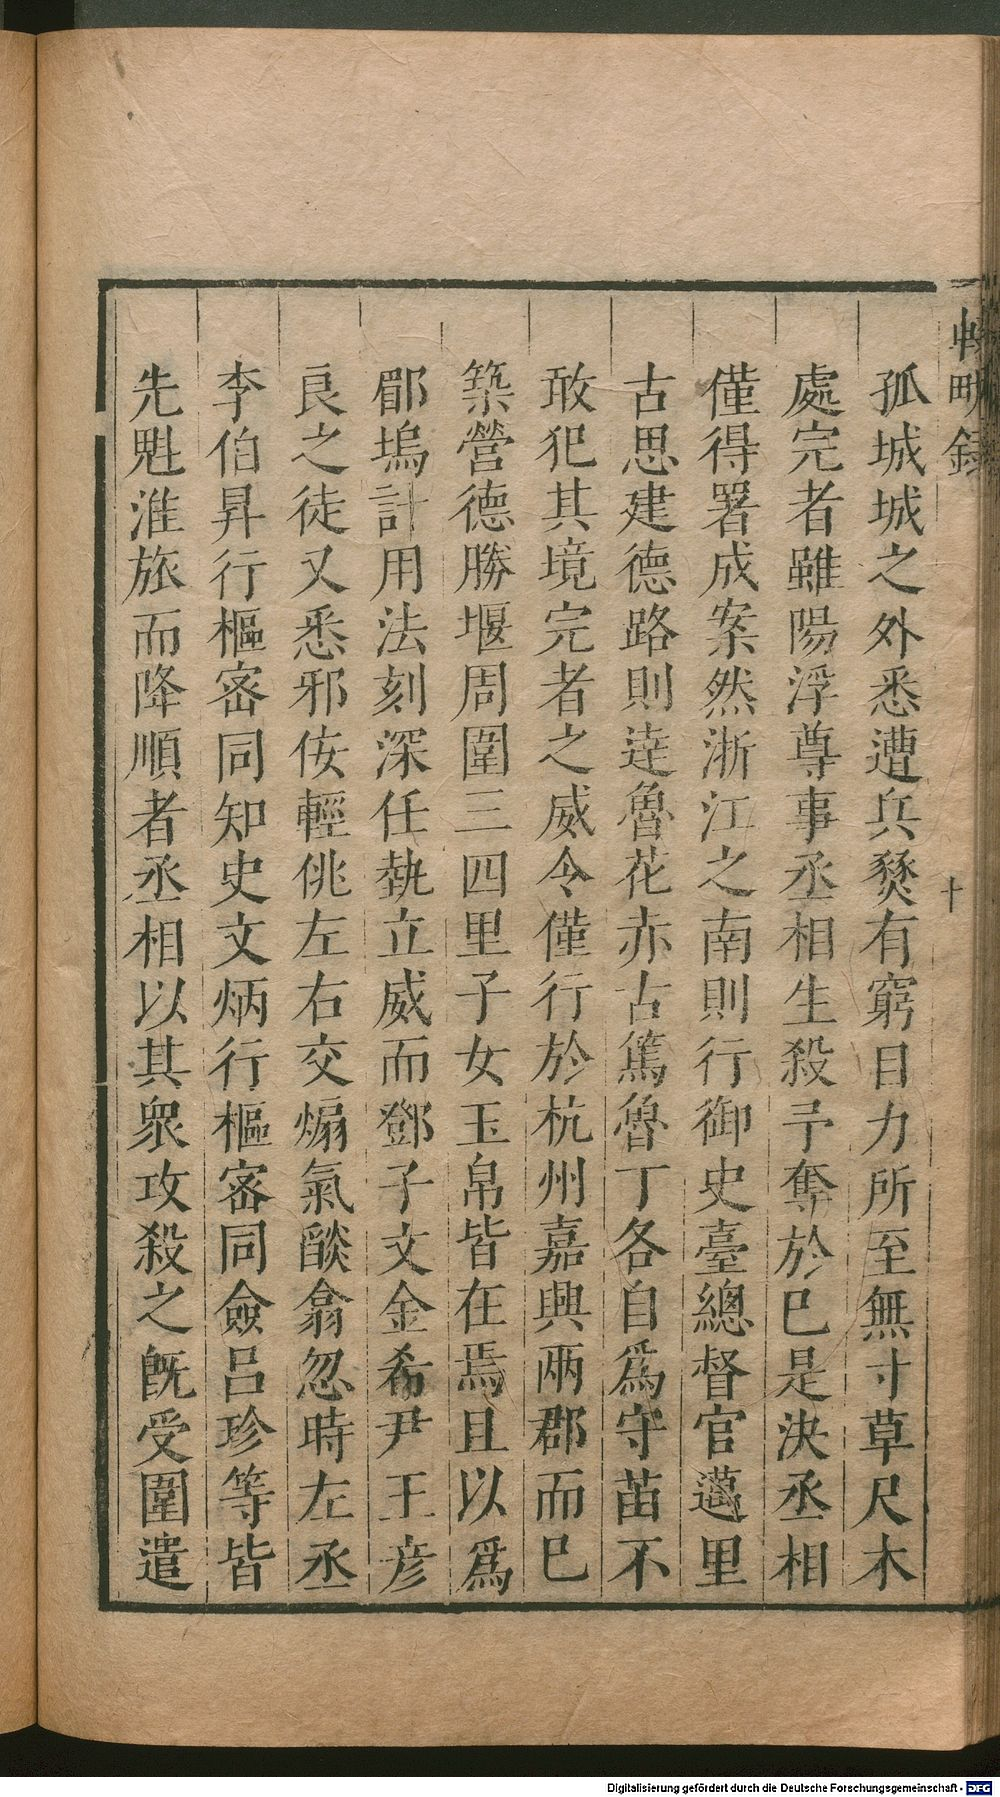 孤城城之外悉遭兵燹有窮目力所至無寸草尺木
處完者雖陽浮尊事丞相生殺予奪於巳是決丞相
僅得署成案然浙江之南則行御史臺總督官邁里
古思建德路則達魯花赤古篤魯丁各自爲守苗不
敢犯其境完者之威令僅行於杭州嘉興兩郡而巳
築營德勝堰周圍三四里子女玉帛皆在焉且以爲
郿塢計用法刻深任執立威而鄧子文金希尹王彦
良之徒又悉邪侫輕佻左右交煽氣𦦨翕忽時左丞
李伯昇行樞密同知史文炳行樞密同僉呂珍等皆
先䰟淮旅而降順者丞相以其衆攻殺之旣受圍遣
十
Digitalisierung gefördert durch die Deutsche Forschungsgemeinschaft - DFG